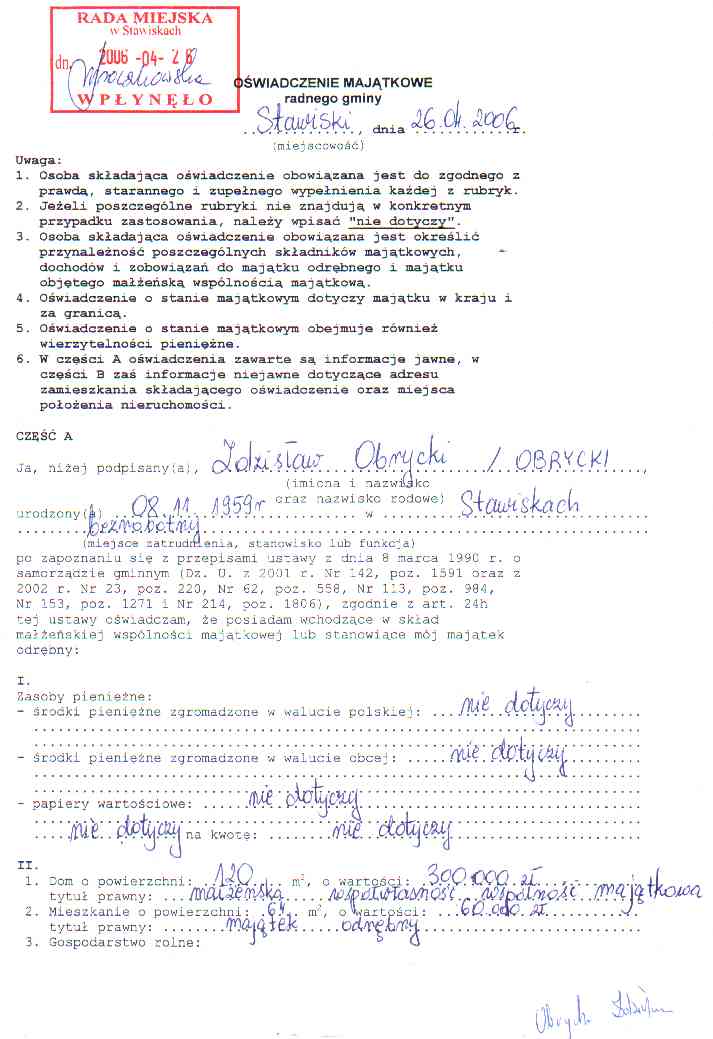 RADA MIEJSKA
w Stawiskach
dn. 2006 -04- 26
WPŁYNĘŁO
OŚWIADCZENIE MAJĄTKOWE
radnego gminy
Stawiski, dnia 26.04.2006r.
(miejscowość)
Uwaga:
1. Osoba składająca oświadczenie obowiązana jest do zgodnego z
prawdą, starannego i zupełnego wypełnienia każdej z rubryk.
2. Jeżeli poszczególne rubryki nie znajdują w konkretnym
przypadku zastosowania, należy wpisać "nie dotyczy".
3. Osoba składająca oświadczenie obowiązana jest określić
przynależność poszczególnych składników majątkowych,
dochodów i zobowiązań do majątku odrębnego i majątku
objętego małżeńską wspólnością majątkową.
4. Oświadczenie o stanie majątkowym dotyczy majątku w kraju i
za granicą.
5. Oświadczenie o stanie majątkowym obejmuje również
wierzytelności pieniężne.
6. W części A oświadczenia zawarte są informacje jawne, w
części B zaś informacje niejawne dotyczące adresu
zamieszkania składającego oświadczenie oraz miejsca
położenia nieruchomości.
CZĘŚĆ A
Ja, niżej podpisany(a), Zdzisław Obrycki / OBRYCKI
(imiona i nazwisko
oraz nazwisko rodowe)
urodzony(a) 08.11.1959r w Stawiskach
bezrobotny
(miejsce zatrudnienia, stanowisko lub funkcja)
po zapoznaniu się z przepisami ustawy z dnia 8 marca 1990 r. o
samorządzie gminnym (Dz. U. z 2001 r. Nr 142, poz. 1591 oraz z
2002 r. Nr 23, poz. 220, Nr 62, poz. 558, Nr 113, poz. 984,
Nr 153, poz. 1271 i Nr 214, poz. 1806), zgodnie z art. 24h
tej ustawy oświadczam, że posiadam wchodzące w skład
małżeńskiej wspólności majątkowej lub stanowiące mój majątek
odrębny:
I.
Zasoby pieniężne:
- środki pieniężne zgromadzone w walucie polskiej: nie dotyczy
- środki pieniężne zgromadzone w walucie obcej: nie dotyczy
- papiery wartościowe: nie dotyczy
nie dotyczy na kwotę: nie dotyczy
II.
1. Dom o powierzchni: 120 m², o wartości: 300.000 zł
tytuł prawny: małżeńska współwłasność wspólność majątkowa
2. Mieszkanie o powierzchni: m², o wartości: 60.000 zł
tytuł prawny: majątek odrębny
3. Gospodarstwo rolne: